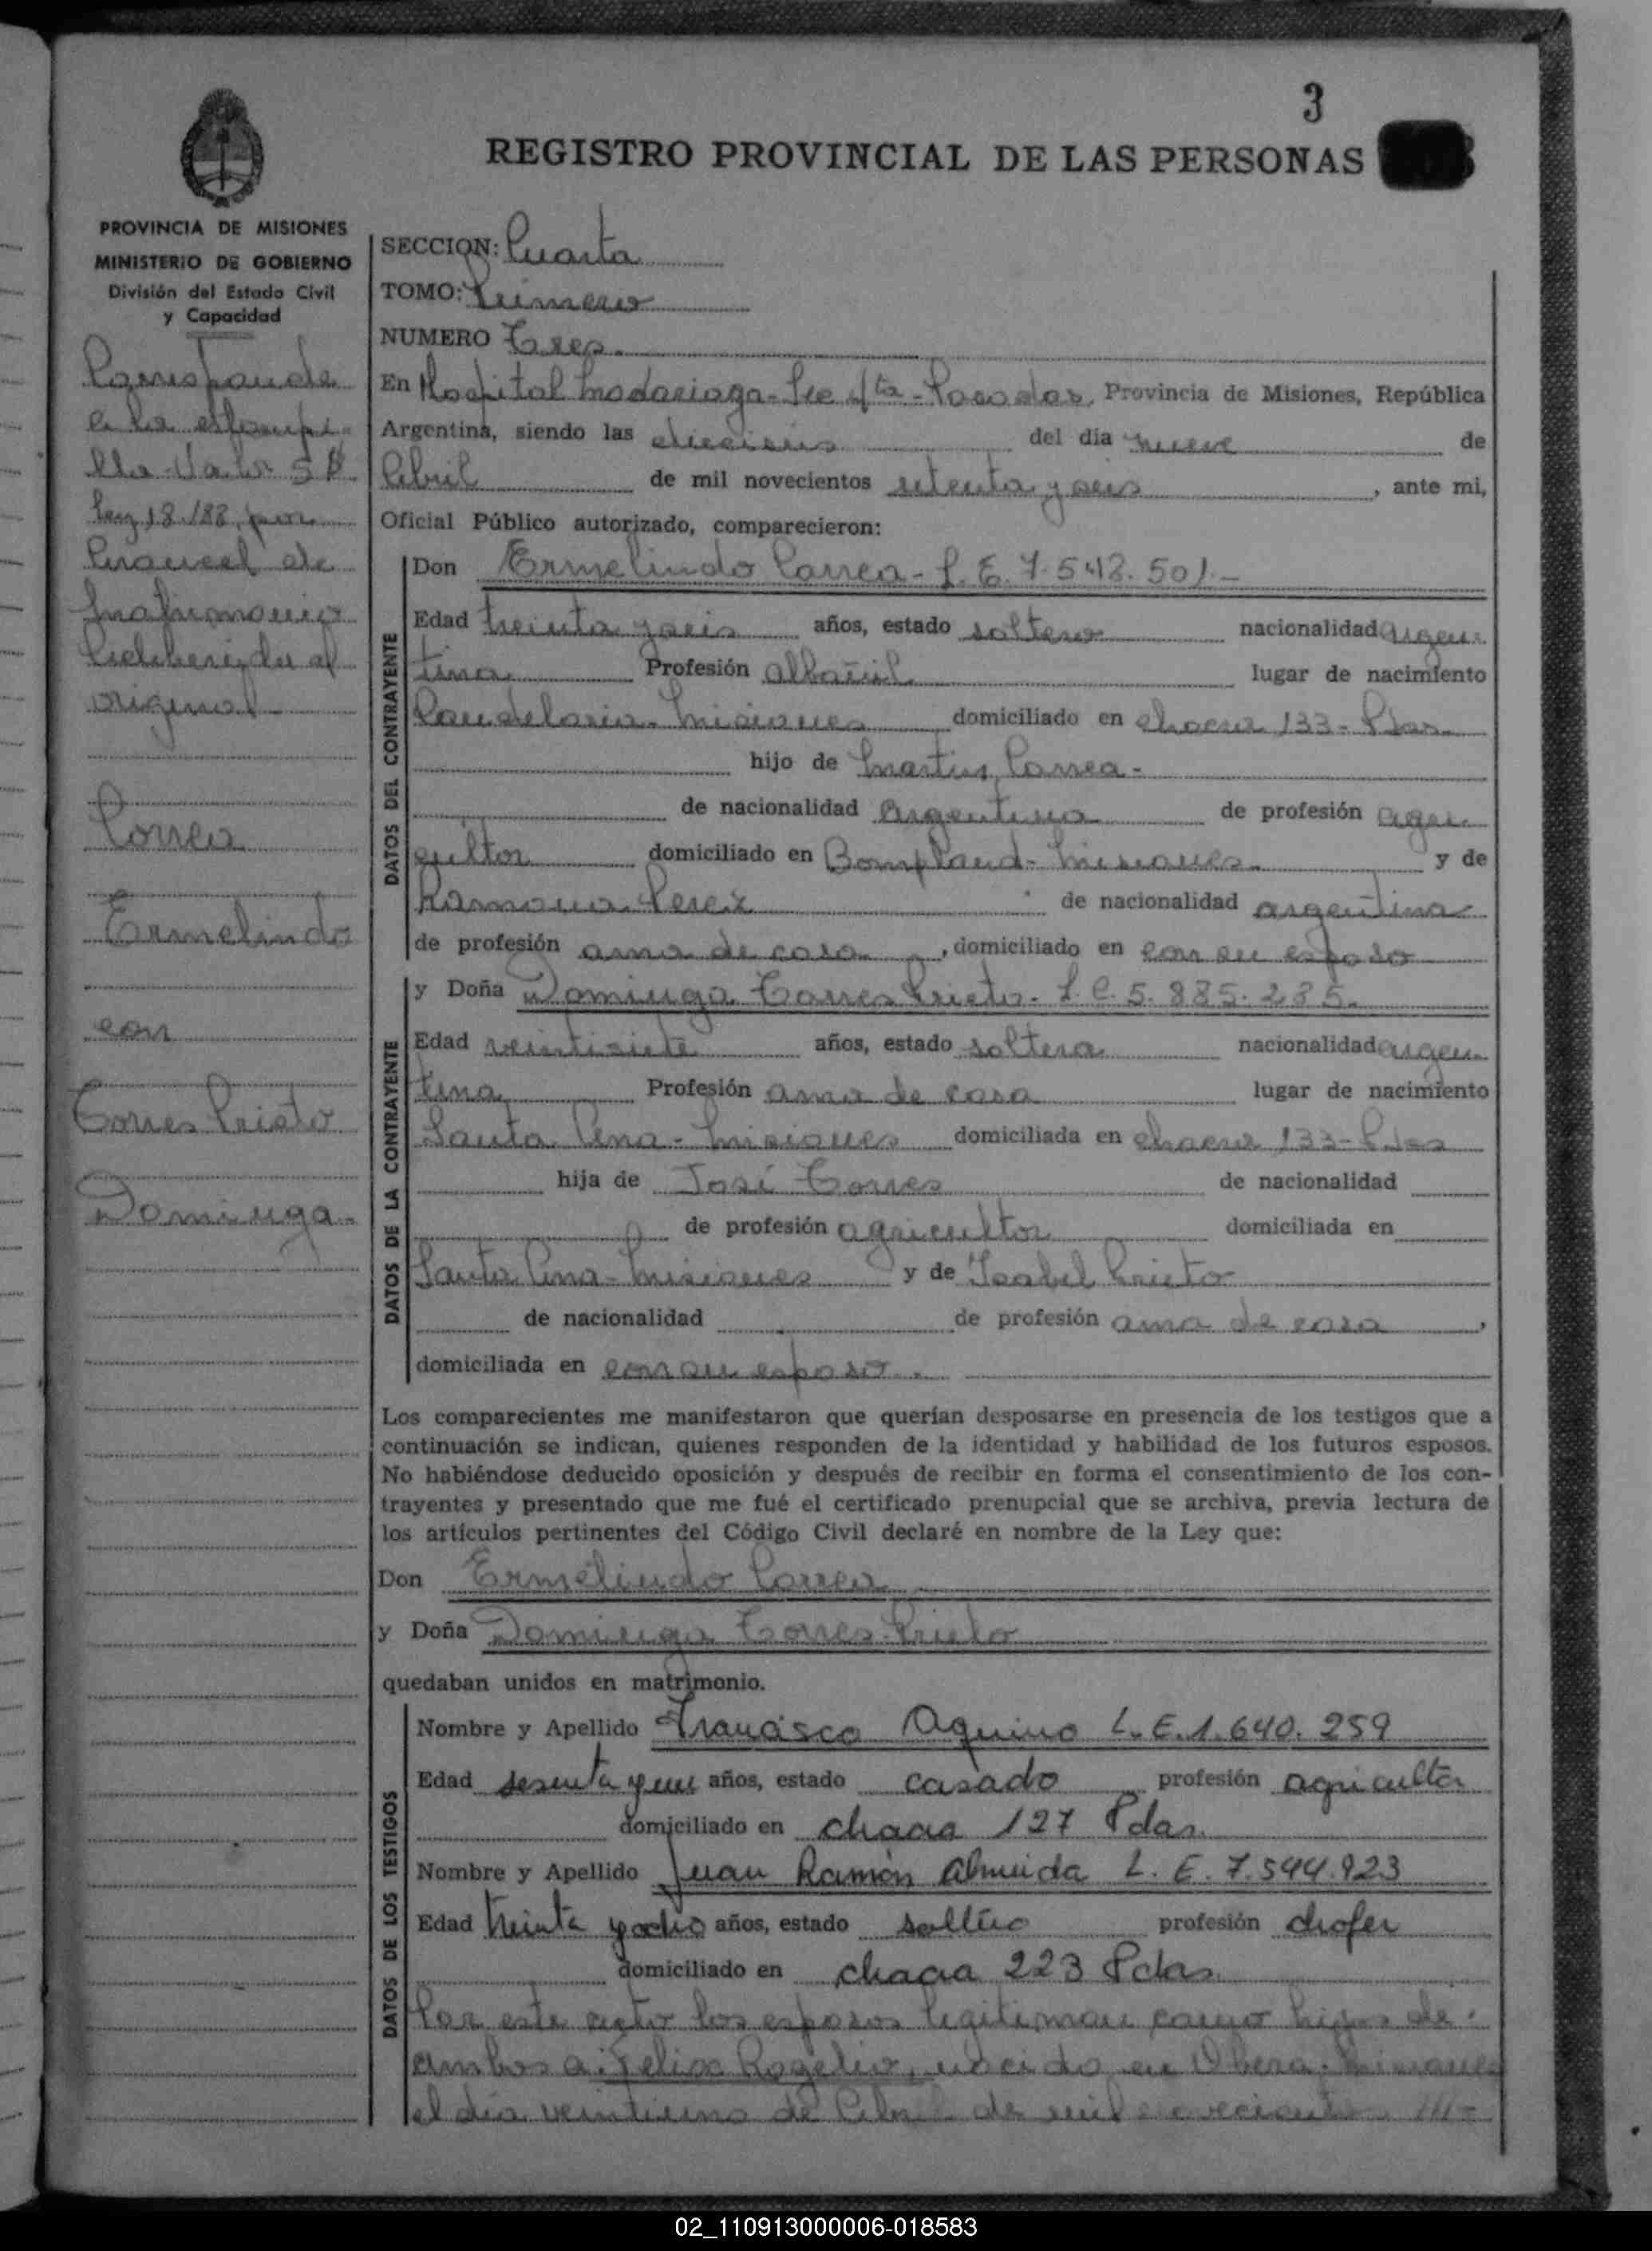 3
REGISTRO PROVINCIAL DE LAS PERSONAS
PROVINCIA DE MISIONES
MINISTERIO DE GOBIERNO
División del Estado Civil
y Capacidad
Corresponde
a la estampi-
lla Valor 5 $
Ley 18.188, por
Arancel de
Matrimonio
Adherida al
original
Correa
Ermelindo
con
Torres Prieto
Dominga.-
SECCION: Cuarta
TOMO: Primero
NUMERO Tres.
En Hospital Madariaga- Sec 4ta - Posadas, Provincia de Misiones, República
Argentina, siendo las dieciseis del día nueve de
Abril de mil novecientos setenta y seis, ante mi,
Oficial Público autorizado, comparecieron:
DATOS DEL CONTRAYENTE
Don Ermelindo Correa - L.E. 7.548.501.-
Edad treinta y seis años, estado soltero nacionalidad argen-
tina Profesión albañil lugar de nacimiento
Candelaria- Misiones domiciliado en chacra 133- Pdas.
hijo de Martin Correa-
de nacionalidad Argentina de profesión agri-
cultor domiciliado en Bompland- Misiones y de
Ramona Perez de nacionalidad argentina
de profesión ama de casa, domiciliado en con su esposo
DATOS DE LA CONTRAYENTE
y Doña Dominga Torres Prieto- L.C 5.885.285.
Edad veintisiete años, estado soltera nacionalidad argen-
tina Profesión ama de casa lugar de nacimiento
Santa Ana - Misiones domiciliada en chacra 133- Pdas
hija de José Torres de nacionalidad
de profesión agricultor domiciliada en
Santa Ana- Misiones y de Isabel Prieto
de nacionalidad de profesión ama de casa,
domiciliada en con su esposo.
Los comparecientes me manifestaron que querían desposarse en presencia de los testigos que a
continuación se indican, quienes responden de la identidad y habilidad de los futuros esposos.
No habiéndose deducido oposición y después de recibir en forma el consentimiento de los con-
trayentes y presentado que me fué el certificado prenupcial que se archiva, previa lectura de
los artículos pertinentes del Código Civil declaré en nombre de la Ley que:
Don Ermelindo Correa
y Doña Dominga Torres Prieto
quedaban unidos en matrimonio.
DATOS DE LOS TESTIGOS
Nombre y Apellido Francisco Aquino L.E.1.640.259
Edad sesenta y un años, estado casado profesión agricultor
domiciliado en chacra 127 Pdas.
Nombre y Apellido Juan Ramón Almeida L. E. 7.544.923
Edad treinta y ocho años, estado soltero profesión chofer
domiciliado en chacra 223 Pdas.
Por este acto los esposos legitiman como hijos de
ambos a: Felix Rogelio, nacido en Obera- Misiones
el día veintiuno de Abril de mil novecientos ///-
02_110913000006-018583